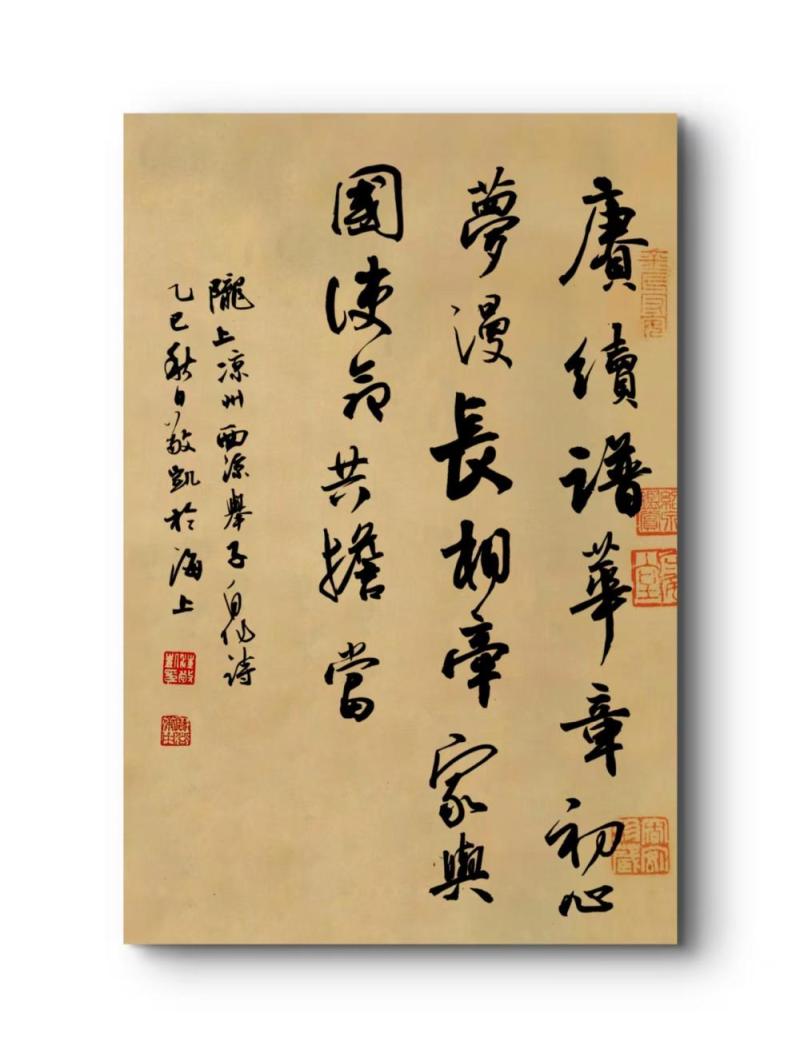 賡續譜華章初心
夢漫長相牽家與
國使命共擔當
隴上凉州西凉舉子自作詩
乙巳秋日敬凱於海上